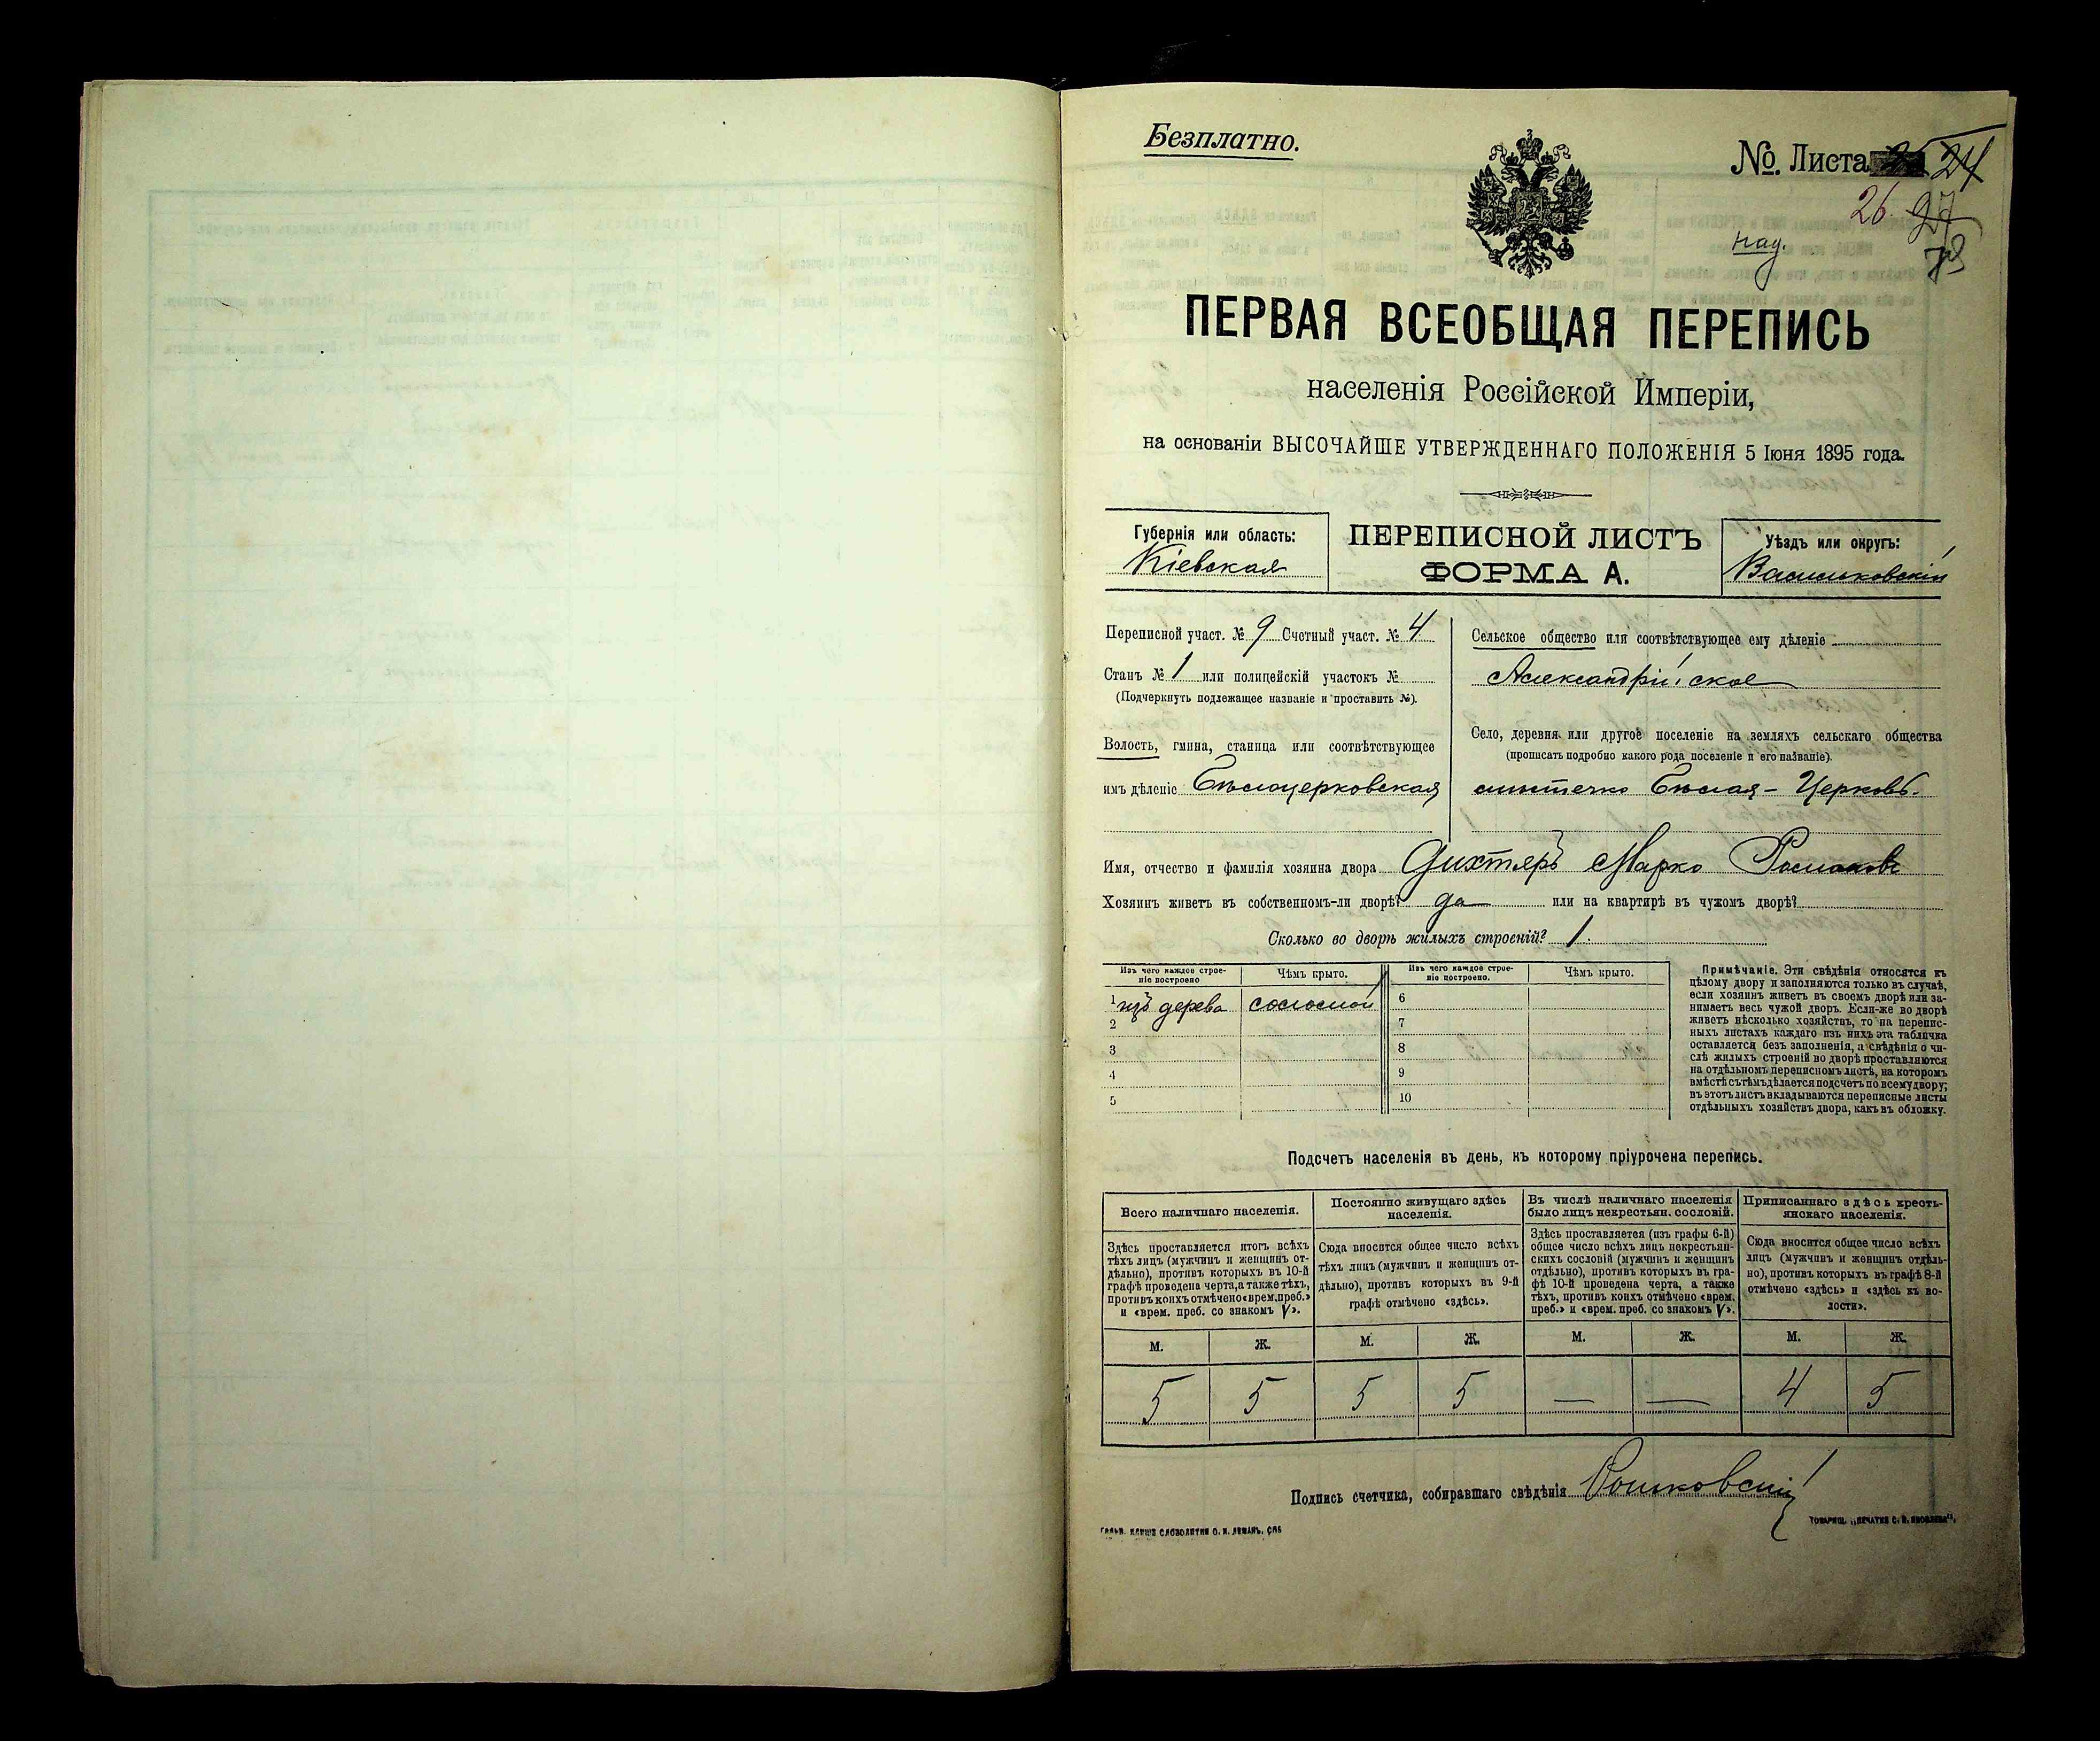 Безплатно.
№ Листа 24
26. 27
78
ПЕРВАЯ ВСЕОБЩАЯ ПЕРЕПИСЬ
населенія Россійской Имперіи,
на основаніи ВЫСОЧАЙШЕ УТВЕРЖДЕННАГО ПОЛОЖЕНІЯ 5 Іюня 1895 года.
Губернія или область:
Кіевская
ПЕРЕПИСНОЙ ЛИСТЪ
ФОРМА А.
Уѣздъ или округъ:
Васильковскій
Переписной участ. № 9 Счетный участ. № 4
Станъ № 1 или полицейскій участокъ №
(Подчеркнуть подлежащее названіе и проставить №).
Волость, гмина, станица или соотвѣтствующее
имъ дѣленіе Бѣлоцерковская
Сельское общество или соотвѣтствующее ему дѣленіе
Александрійское
Село, деревня или другое поселеніе на земляхъ сельскаго общества
(прописать подробно какого рода поселеніе и его названіе).
мѣстечко Бѣлая-Церковь.
Имя, отчество и фамилія хозяина двора Дихтярь Марко Романовъ
Хозяинъ живетъ въ собственномъ-ли дворѣ? да или на квартирѣ въ чужомъ дворѣ?
Сколько во дворѣ жилыхъ строеній? 1.
Изъ чего каждое строе-
ніе построено
Чѣмъ крыто.
Изъ чего каждое строе-
ніе построено.
Чѣмъ крыто.
1 изъ дерева соломой 6
2 7
3 8
4 9
5 10
Примѣчаніе. Эти свѣдѣнія относятся къ
цѣлому двору и заполняются только въ случаѣ,
если хозяинъ живетъ въ своемъ дворѣ или за-
нимаетъ весь чужой дворъ. Если-же во дворѣ
живетъ нѣсколько хозяйствъ, то на перепис-
ныхъ листахъ каждаго изъ нихъ эта табличка
оставляется безъ заполненія, а свѣдѣнія о чи-
слѣ жилыхъ строеній во дворѣ проставляются
на отдѣльномъ переписномъ листѣ, на которомъ
вмѣстѣ съ тѣмъ дѣлается подсчетъ по всему двору;
въ этотъ листъ вкладываются переписные листы
отдѣльныхъ хозяйствъ двора, какъ въ обложку.
Подсчетъ населенія въ день, къ которому пріурочена перепись.
Всего наличнаго населенія.
Здѣсь проставляется итогъ всѣхъ
тѣхъ лицъ (мужчинъ и женщинъ от-
дѣльно), противъ которыхъ въ 10-й
графѣ проведена черта, а также тѣхъ,
противъ коихъ отмѣчено «врем. преб.»
и «врем. преб. со знакомъ V».
Постоянно живущаго здѣсь
населенія.
Сюда вносится общее число всѣхъ
тѣхъ лицъ (мужчинъ и женщинъ от-
дѣльно), противъ которыхъ въ 9-й
графѣ отмѣчено «здѣсь».
Въ числѣ наличнаго населенія
было лицъ некрестьян. сословій.
Здѣсь проставляется (изъ графы 6-й)
общее число всѣхъ лицъ некрестьян-
скихъ сословій (мужчинъ и женщинъ
отдѣльно), противъ которыхъ въ гра-
фѣ 10-й проведена черта, а также
тѣхъ, противъ коихъ отмѣчено «врем.
преб.» и «врем. преб. со знакомъ V».
Приписаннаго здѣсь кресть-
янскаго населенія.
Сюда вносится общее число всѣхъ
лицъ (мужчинъ и женщинъ отдѣль-
но), противъ которыхъ въ графѣ 8-й
отмѣчено «здѣсь» и «здѣсь къ во-
лости».
М. Ж. М. Ж. М. Ж. М. Ж.
5 5 5 5 — — 4 5
Подпись счетчика, собиравшаго свѣдѣнія
СЛОВОЛИТНИ О. И. ЛЕМАНЪ, СПБ